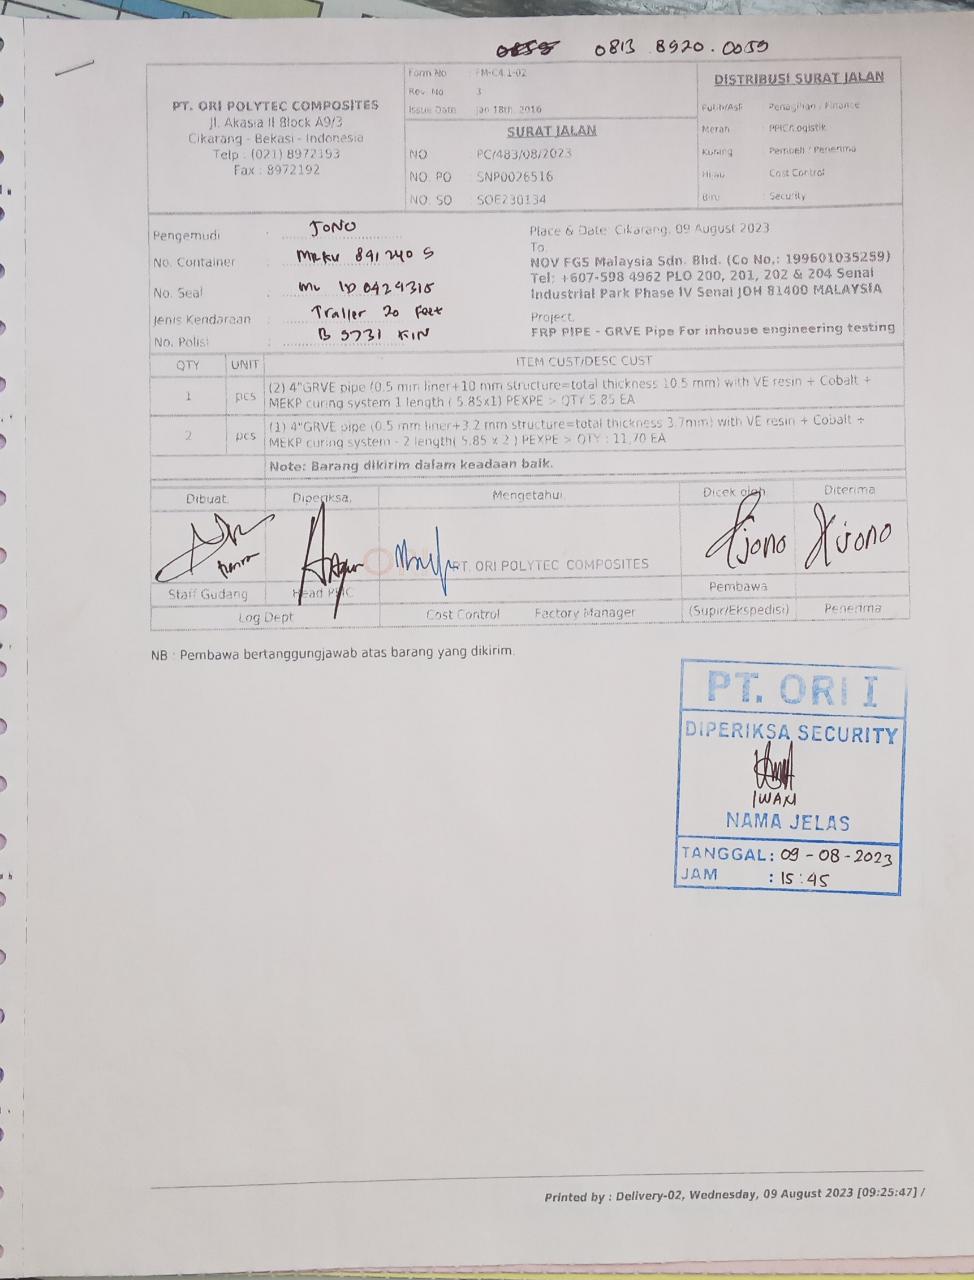 0813 8920.0059
PT. ORI POLYTEC COMPOSITES
Jl. Akasia II Block A9/3
Cikarang - Bekasi - Indonesia
Telp : (021) 8972193
Fax : 8972192
Form No : FM-C4.1-02
Rev. No : 3
Issue Date : Jan 18th, 2016
SURAT JALAN
NO : PC/483/08/2023
NO. PO : SNP0026516
NO. SO : SOE230134
DISTRIBUSI SURAT JALAN
Putih/Asli : Penagihan / Finance
Merah : PPIC/Logistik
Kuning : Pembeli / Penerima
Hijau : Cost Control
Biru : Security
Pengemudi : JONO
No. Container : MRKU 891240 5
No. Seal : ML ID 0429315
Jenis Kendaraan : Trailer 20 Feet
No. Polisi : B 9731 KIN
Place & Date: Cikarang, 09 August 2023
To.
NOV FGS Malaysia Sdn. Bhd. (Co No.: 199601035259)
Tel: +607-598 4962 PLO 200, 201, 202 & 204 Senai
Industrial Park Phase IV Senai JOH 81400 MALAYSIA
Project.
FRP PIPE - GRVE Pipe For inhouse engineering testing
QTY UNIT ITEM CUST/DESC CUST
1 pcs (2) 4"GRVE pipe (0.5 mm liner+10 mm structure=total thickness 10.5 mm) with VE resin + Cobalt +
MEKP curing system 1 length ( 5.85x1) PEXPE > QTY 5.85 EA
2 pcs (1) 4"GRVE pipe (0.5 mm liner+3.2 mm structure=total thickness 3.7mm) with VE resin + Cobalt +
MEKP curing system - 2 length( 5.85 x 2 ) PEXPE > QTY : 11,70 EA
Note: Barang dikirim dalam keadaan baik.
Dibuat, Diperiksa, Mengetahui Dicek oleh Diterima
PT. ORI POLYTEC COMPOSITES
Jono
Staff Gudang Head PPIC Pembawa
Log Dept Cost Control Factory Manager (Supir/Ekspedisi) Penerima
NB : Pembawa bertanggungjawab atas barang yang dikirim.
PT. ORI I
DIPERIKSA SECURITY
IWAN
NAMA JELAS
TANGGAL: 09-08-2023
JAM : 15:45
Printed by : Delivery-02, Wednesday, 09 August 2023 [09:25:47] /